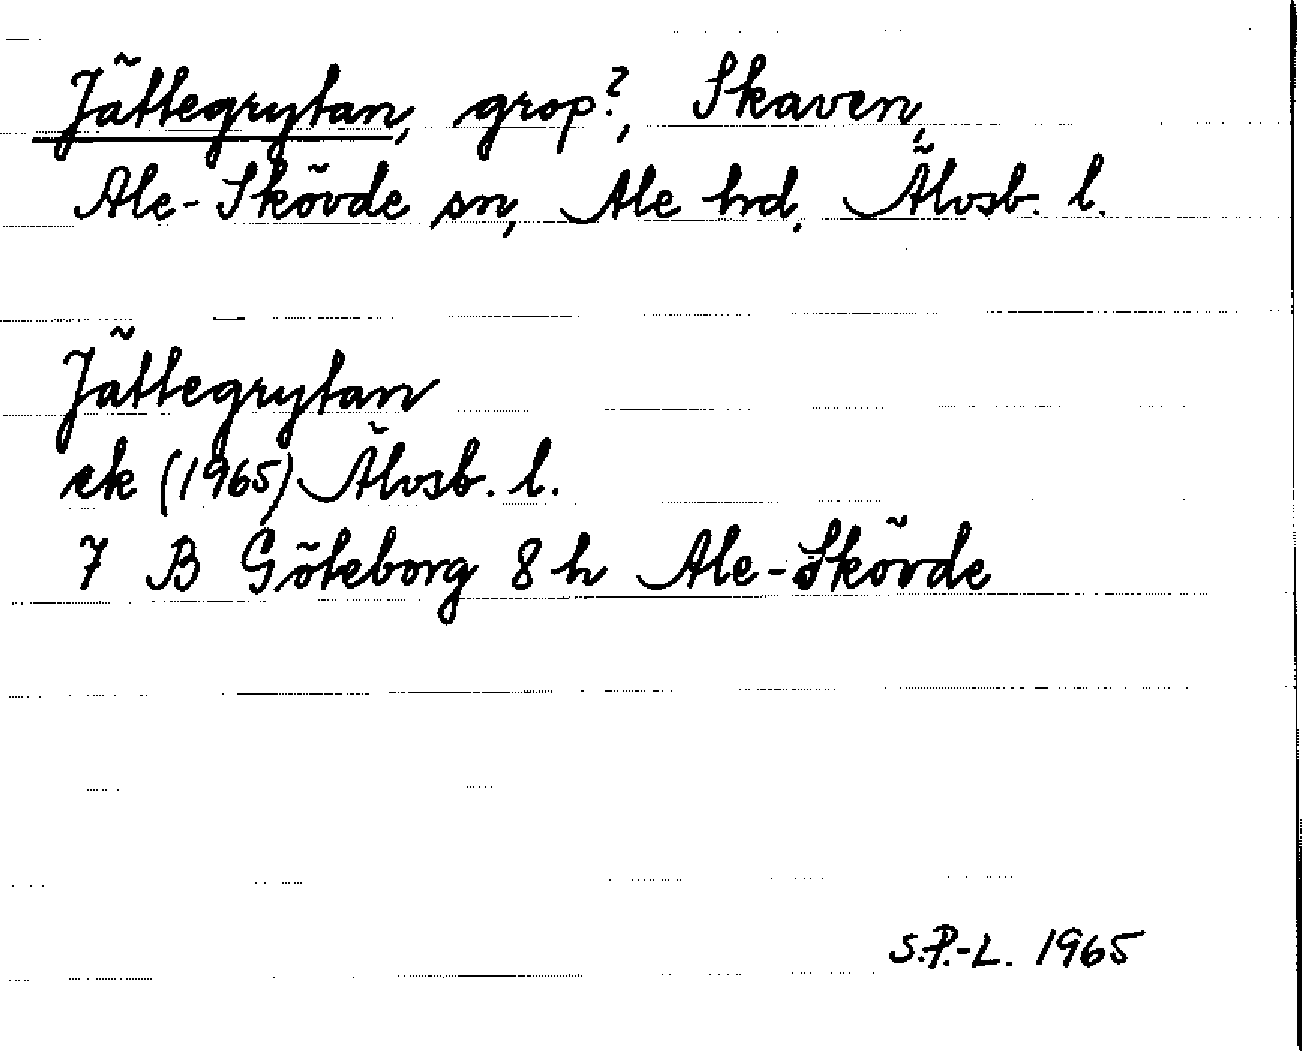 Jättegrytan, grop?, Skaven,
Ale-Skövde sn, Ale hrd, Älvsb. l.
Jättegrytan
ek (1965) Älvsb. l.
7 B Göteborg 8 h Ale-Skövde
S.P.-L. 1965